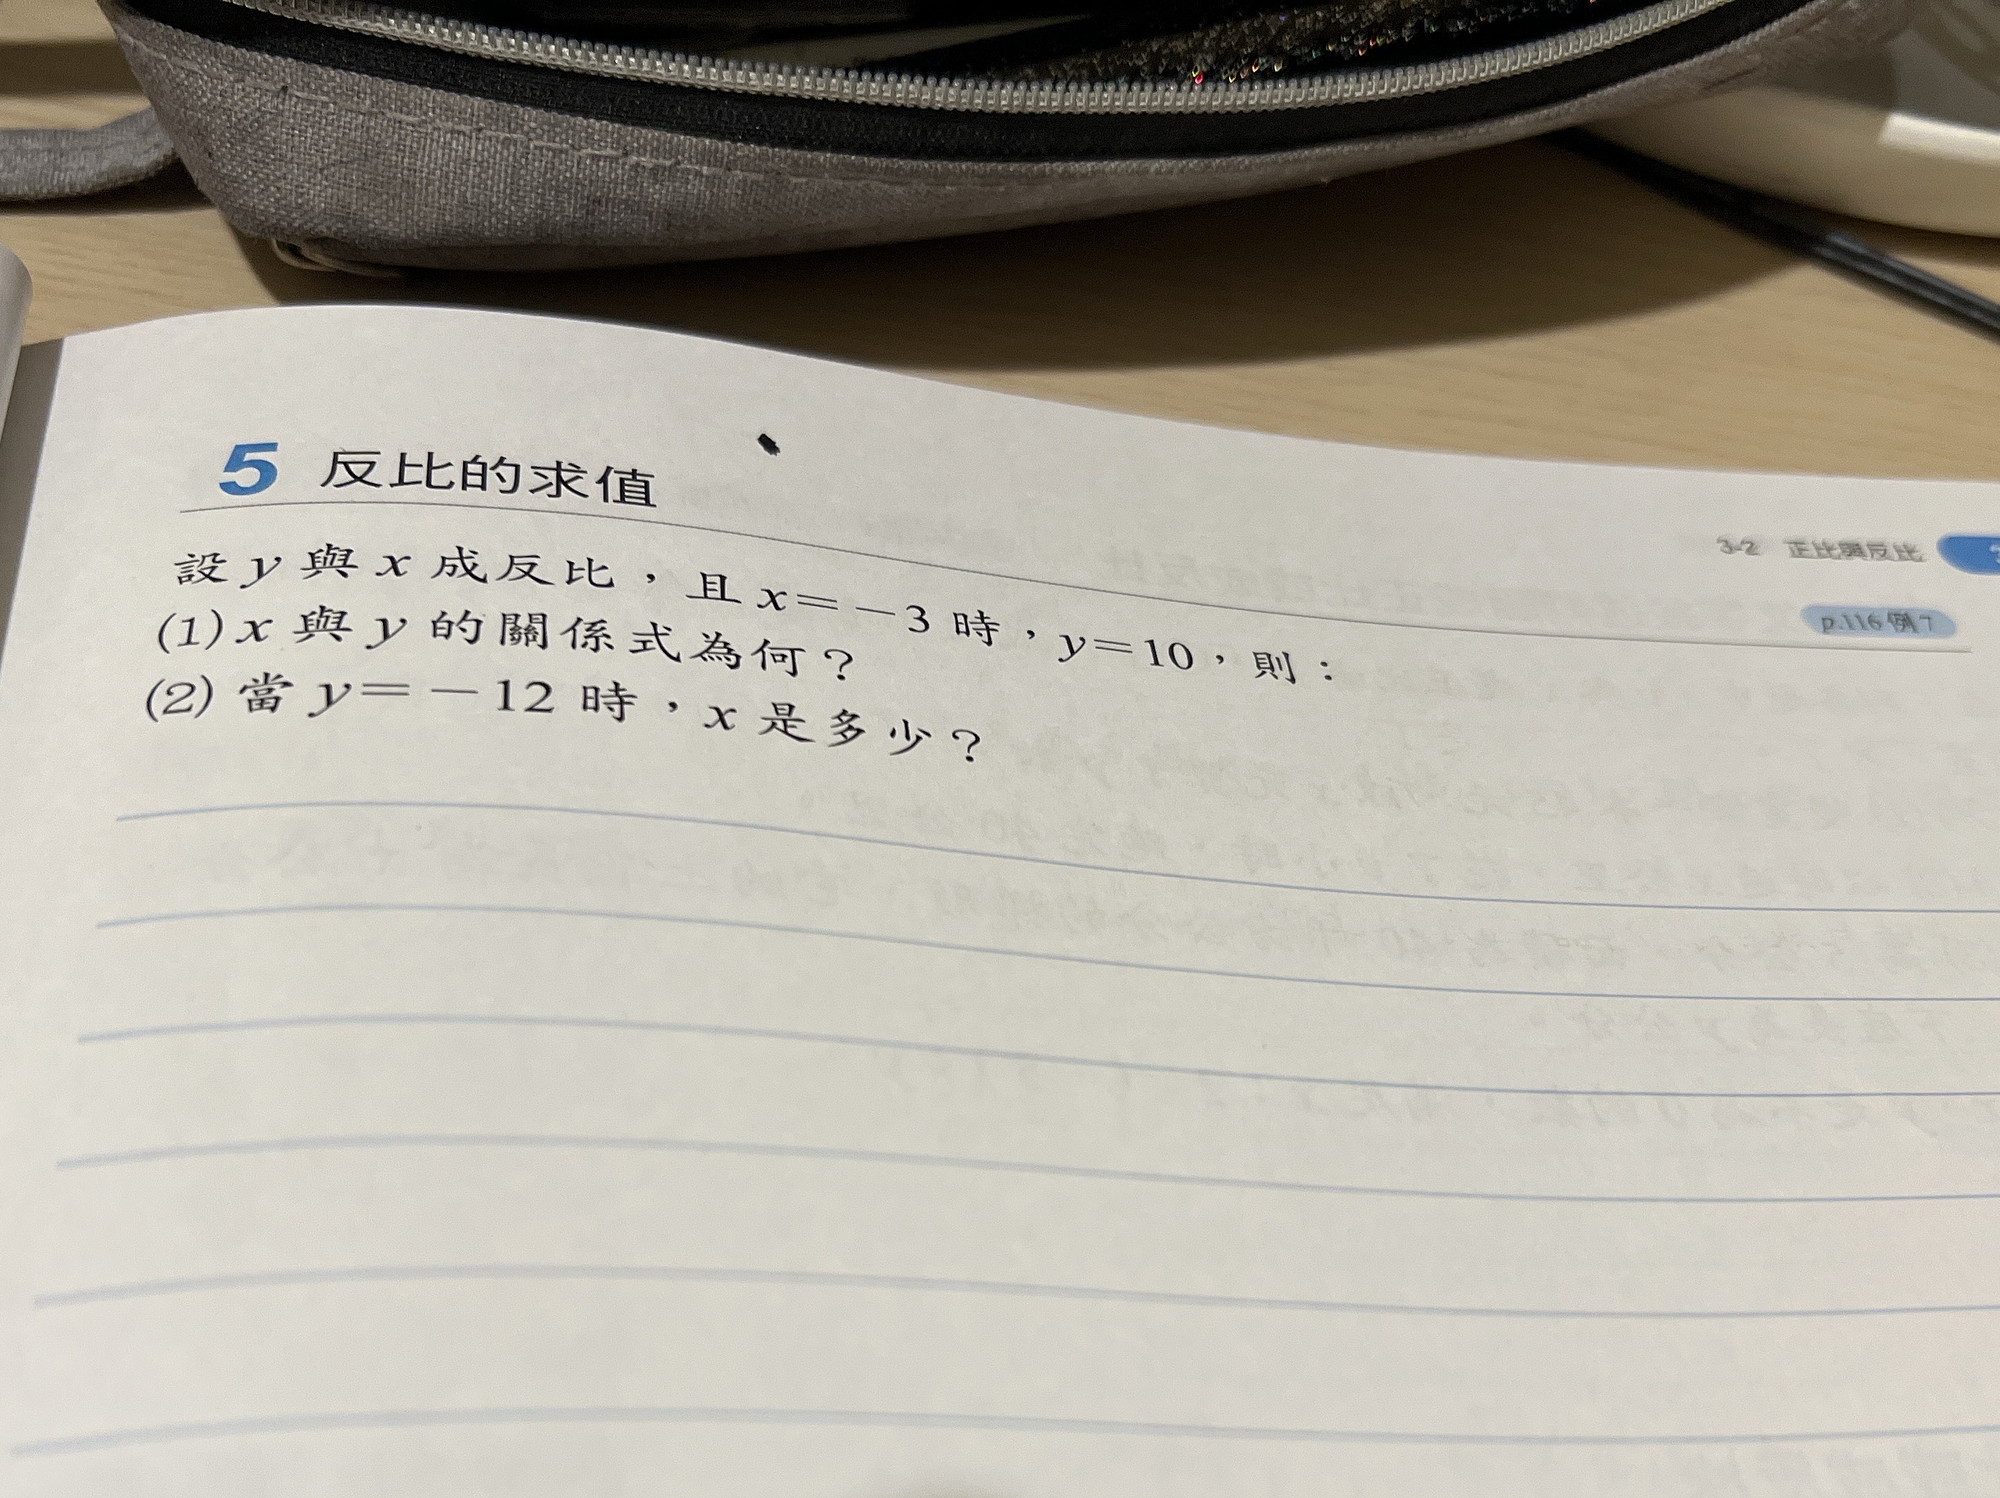 5 反比的求值
3-2 正比與反比
p.116 例7
設 y 與 x 成反比，且 x=-3 時，y=10，則：
(1) x 與 y 的關係式為何？
(2) 當 y=-12 時，x 是多少？